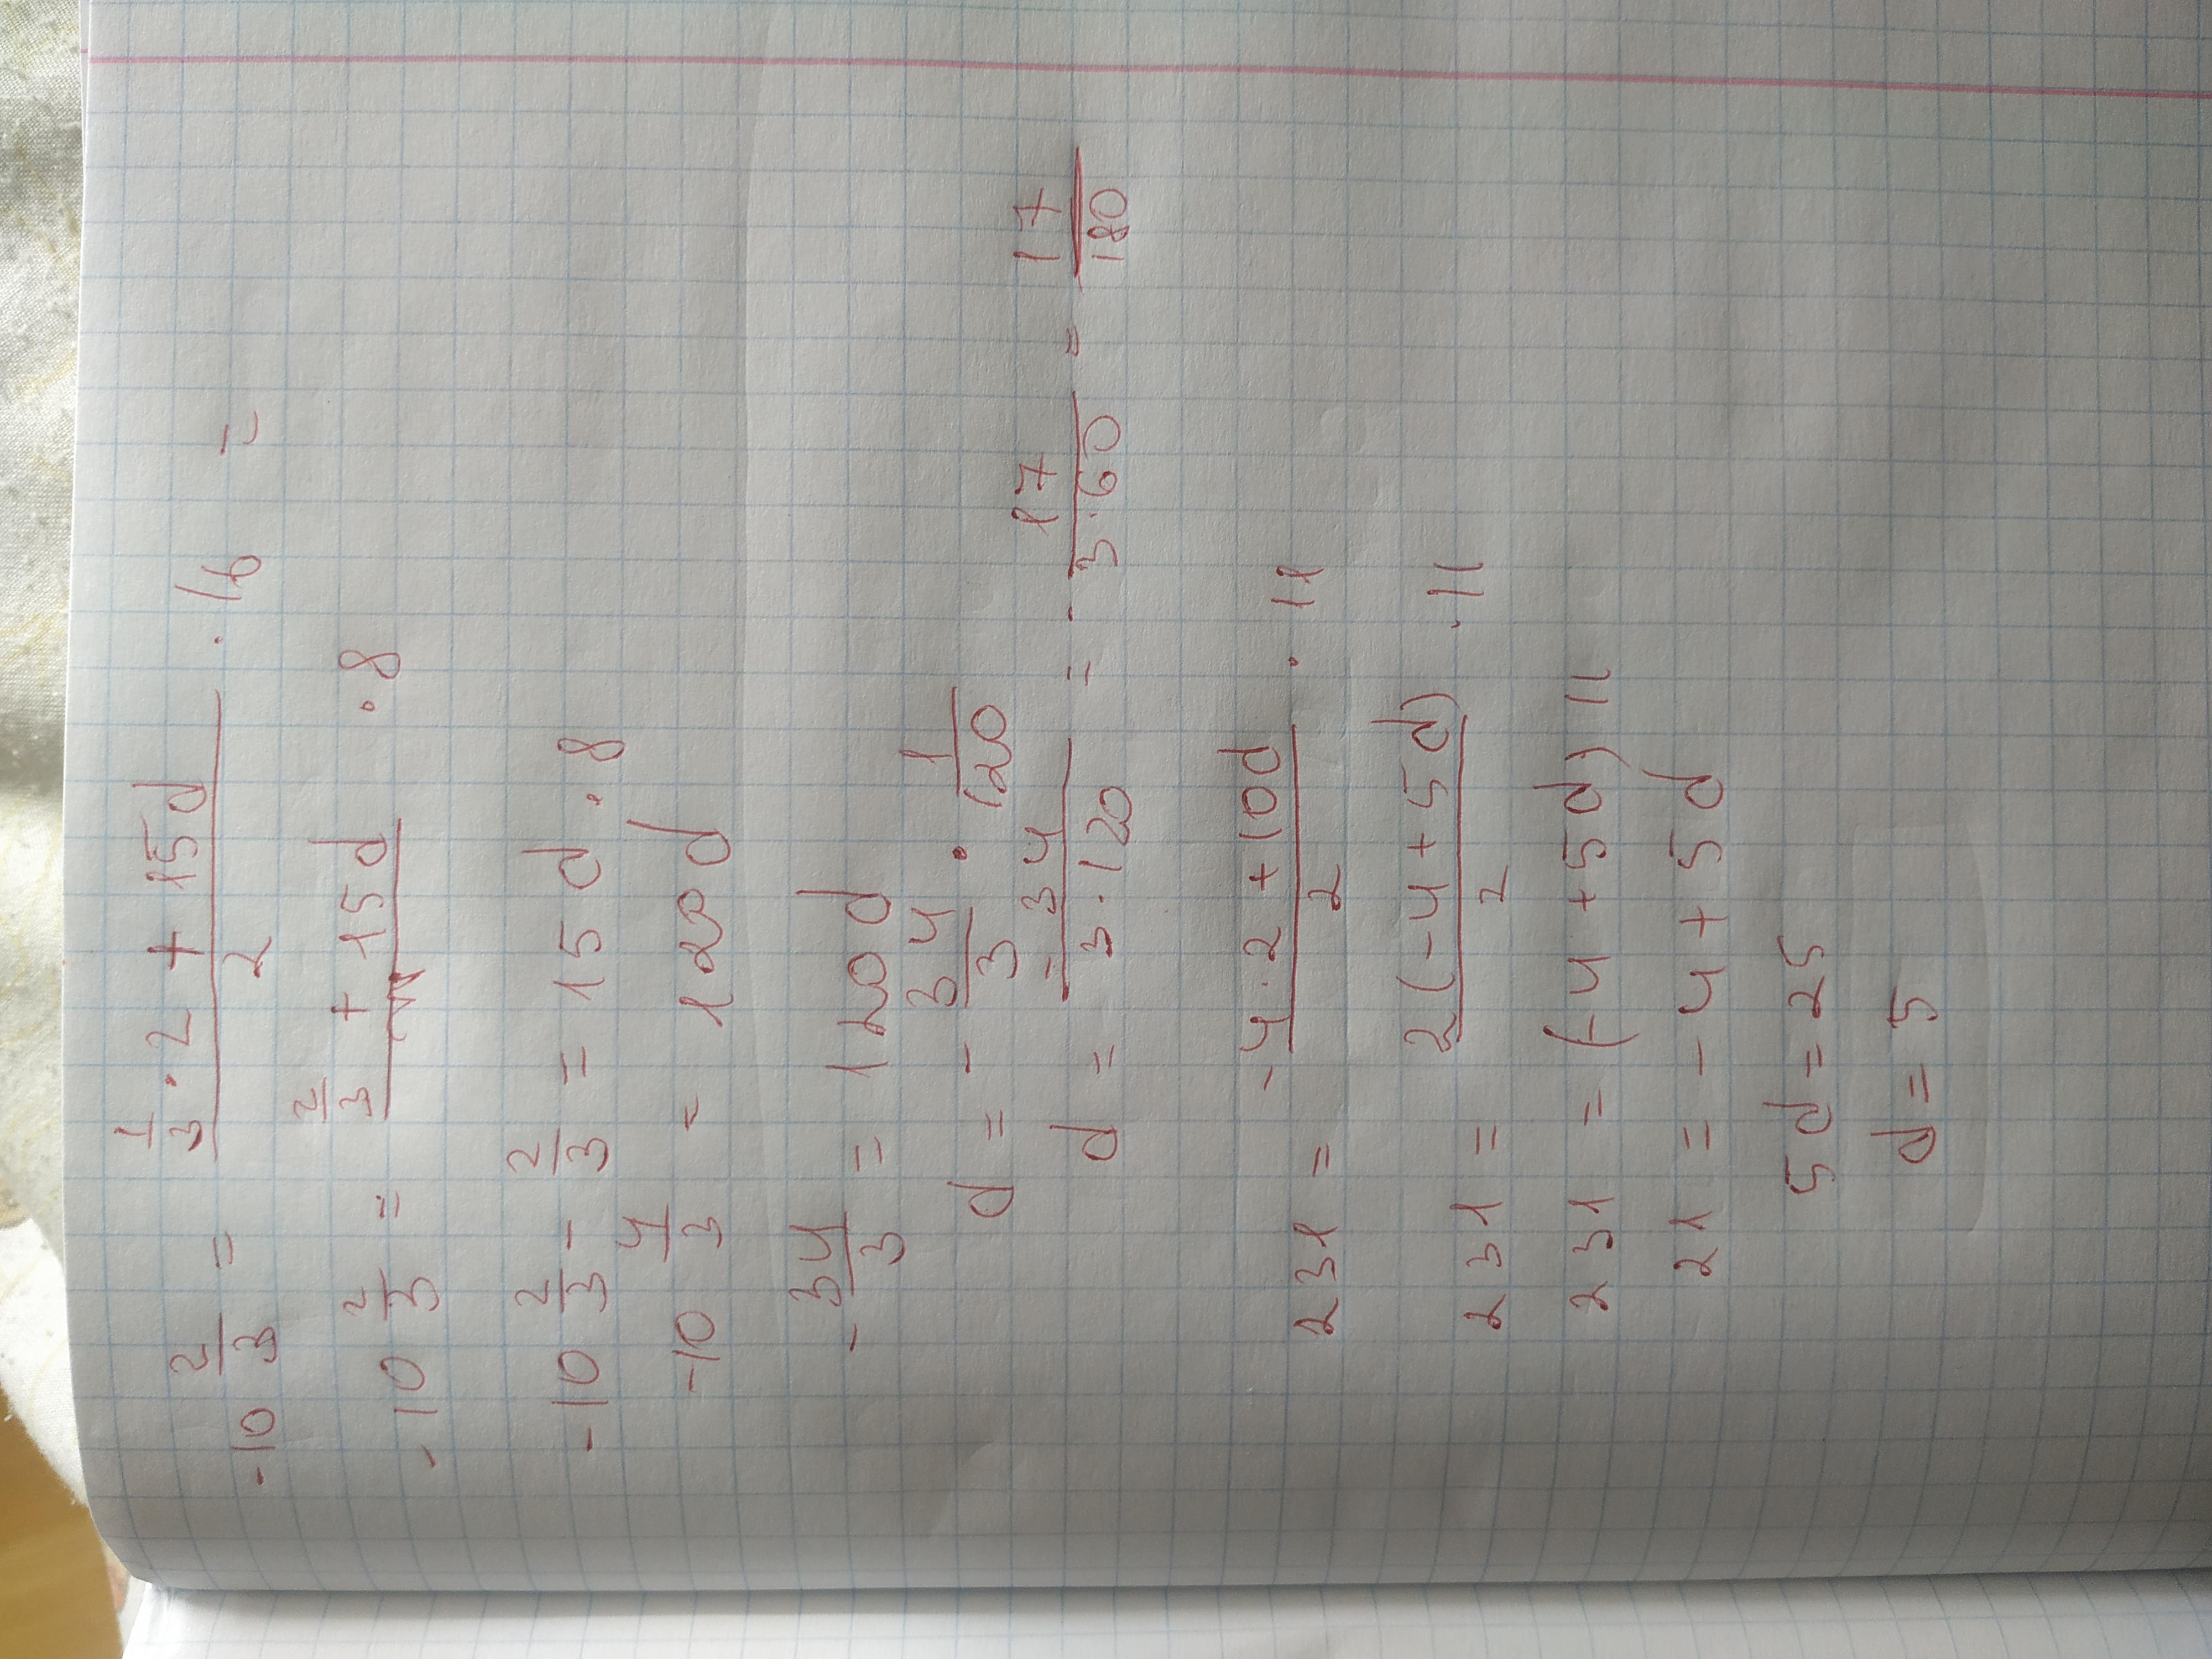 -10 2/3 = (1/3 · 2 + 15d)/2 · 16 =
-10 2/3 = (2/3 + 15d)/ · 8
-10 2/3 - 2/3 = 15d · 8
-10 4/3 = 120d
-34/3 = 120d
d = - 34/3 · 1/120
d = -34/(3·120) = - 17/(3·60) = 17/180
231 = (-4·2+10d)/2 · 11
231 = 2(-4+5d)/2 · 11
231 = (-4+5d) 11
21 = -4+5d
5d = 25
d = 5